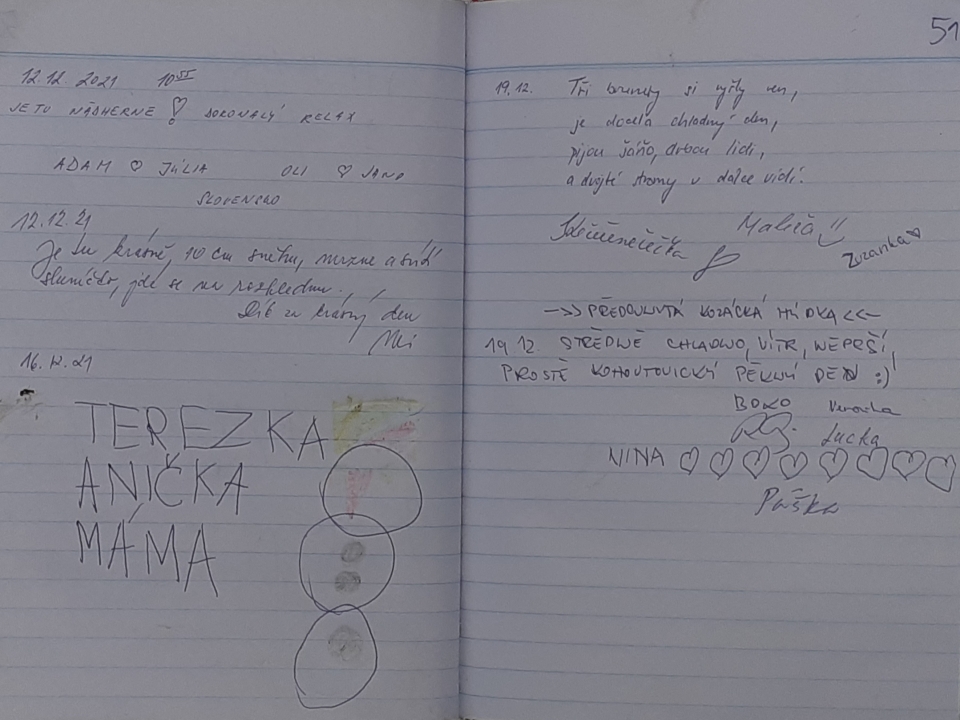 12.12. 2021 10 55
JE TU NÁDHERNE ♡ DOKONALÝ RELAX
ADAM ♡ JÚLIA OLI ♡ JANO
SLOVENSKO
12.12.21
Je tu krásně, 10 cm sněhu, mrzne a svítí
sluníčko, jde se na rozhlednu.
Dík za krásný den
16.12.21
TEREZKA
ANIČKA
MÁMA
51
19.12. Tři bunndy si vyšly ven,
je docela chladný den,
pijou šáňo, drbou lidi,
a dvojté stromy v dálce vidí.
Zuzanka ♡
->> PŘEDOUŠKITÁ KOZÁCKÁ HLÍDKA <<-
19.12. STŘEDNĚ CHLADNO, VÍTR, NEPRŠÍ,
PROSTĚ KOHOUTOVICKÝ PĚKNÝ DEN :)
BOKO Veronika
Lucka
NINA ♡ ♡ ♡ ♡ ♡ ♡ ♡ ♡
Paška